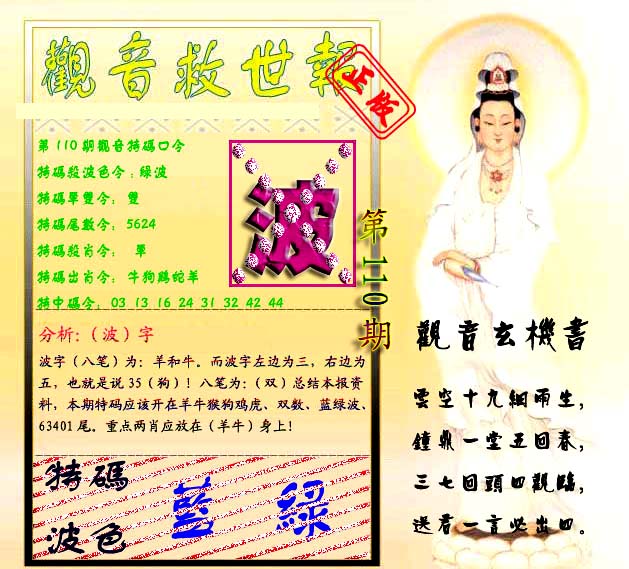 觀音救世報
正版
第110期觀音特碼口令
特碼殺波色令：綠波
特碼單雙令： 雙
特碼尾數令： 5624
特碼殺肖令： 單
特碼出肖令： 牛狗鷄蛇羊
特中碼令： 03 13 16 24 31 32 42 44
波
第110期
分析：（波）字
波字（八笔）为：羊和牛。而波字左边为三，右边为
五，也就是说35（狗）！八笔为：（双）总结本报资
料，本期特码应该开在羊牛猴狗鸡虎、双数、蓝绿波、
63401尾。重点两肖应放在（羊牛）身上！
特碼
波色
藍 綠
觀音玄機書
雲空十九細雨生，
鐘鼎一堂五回春，
三七回頭四觀臨，
送君一言必出四。